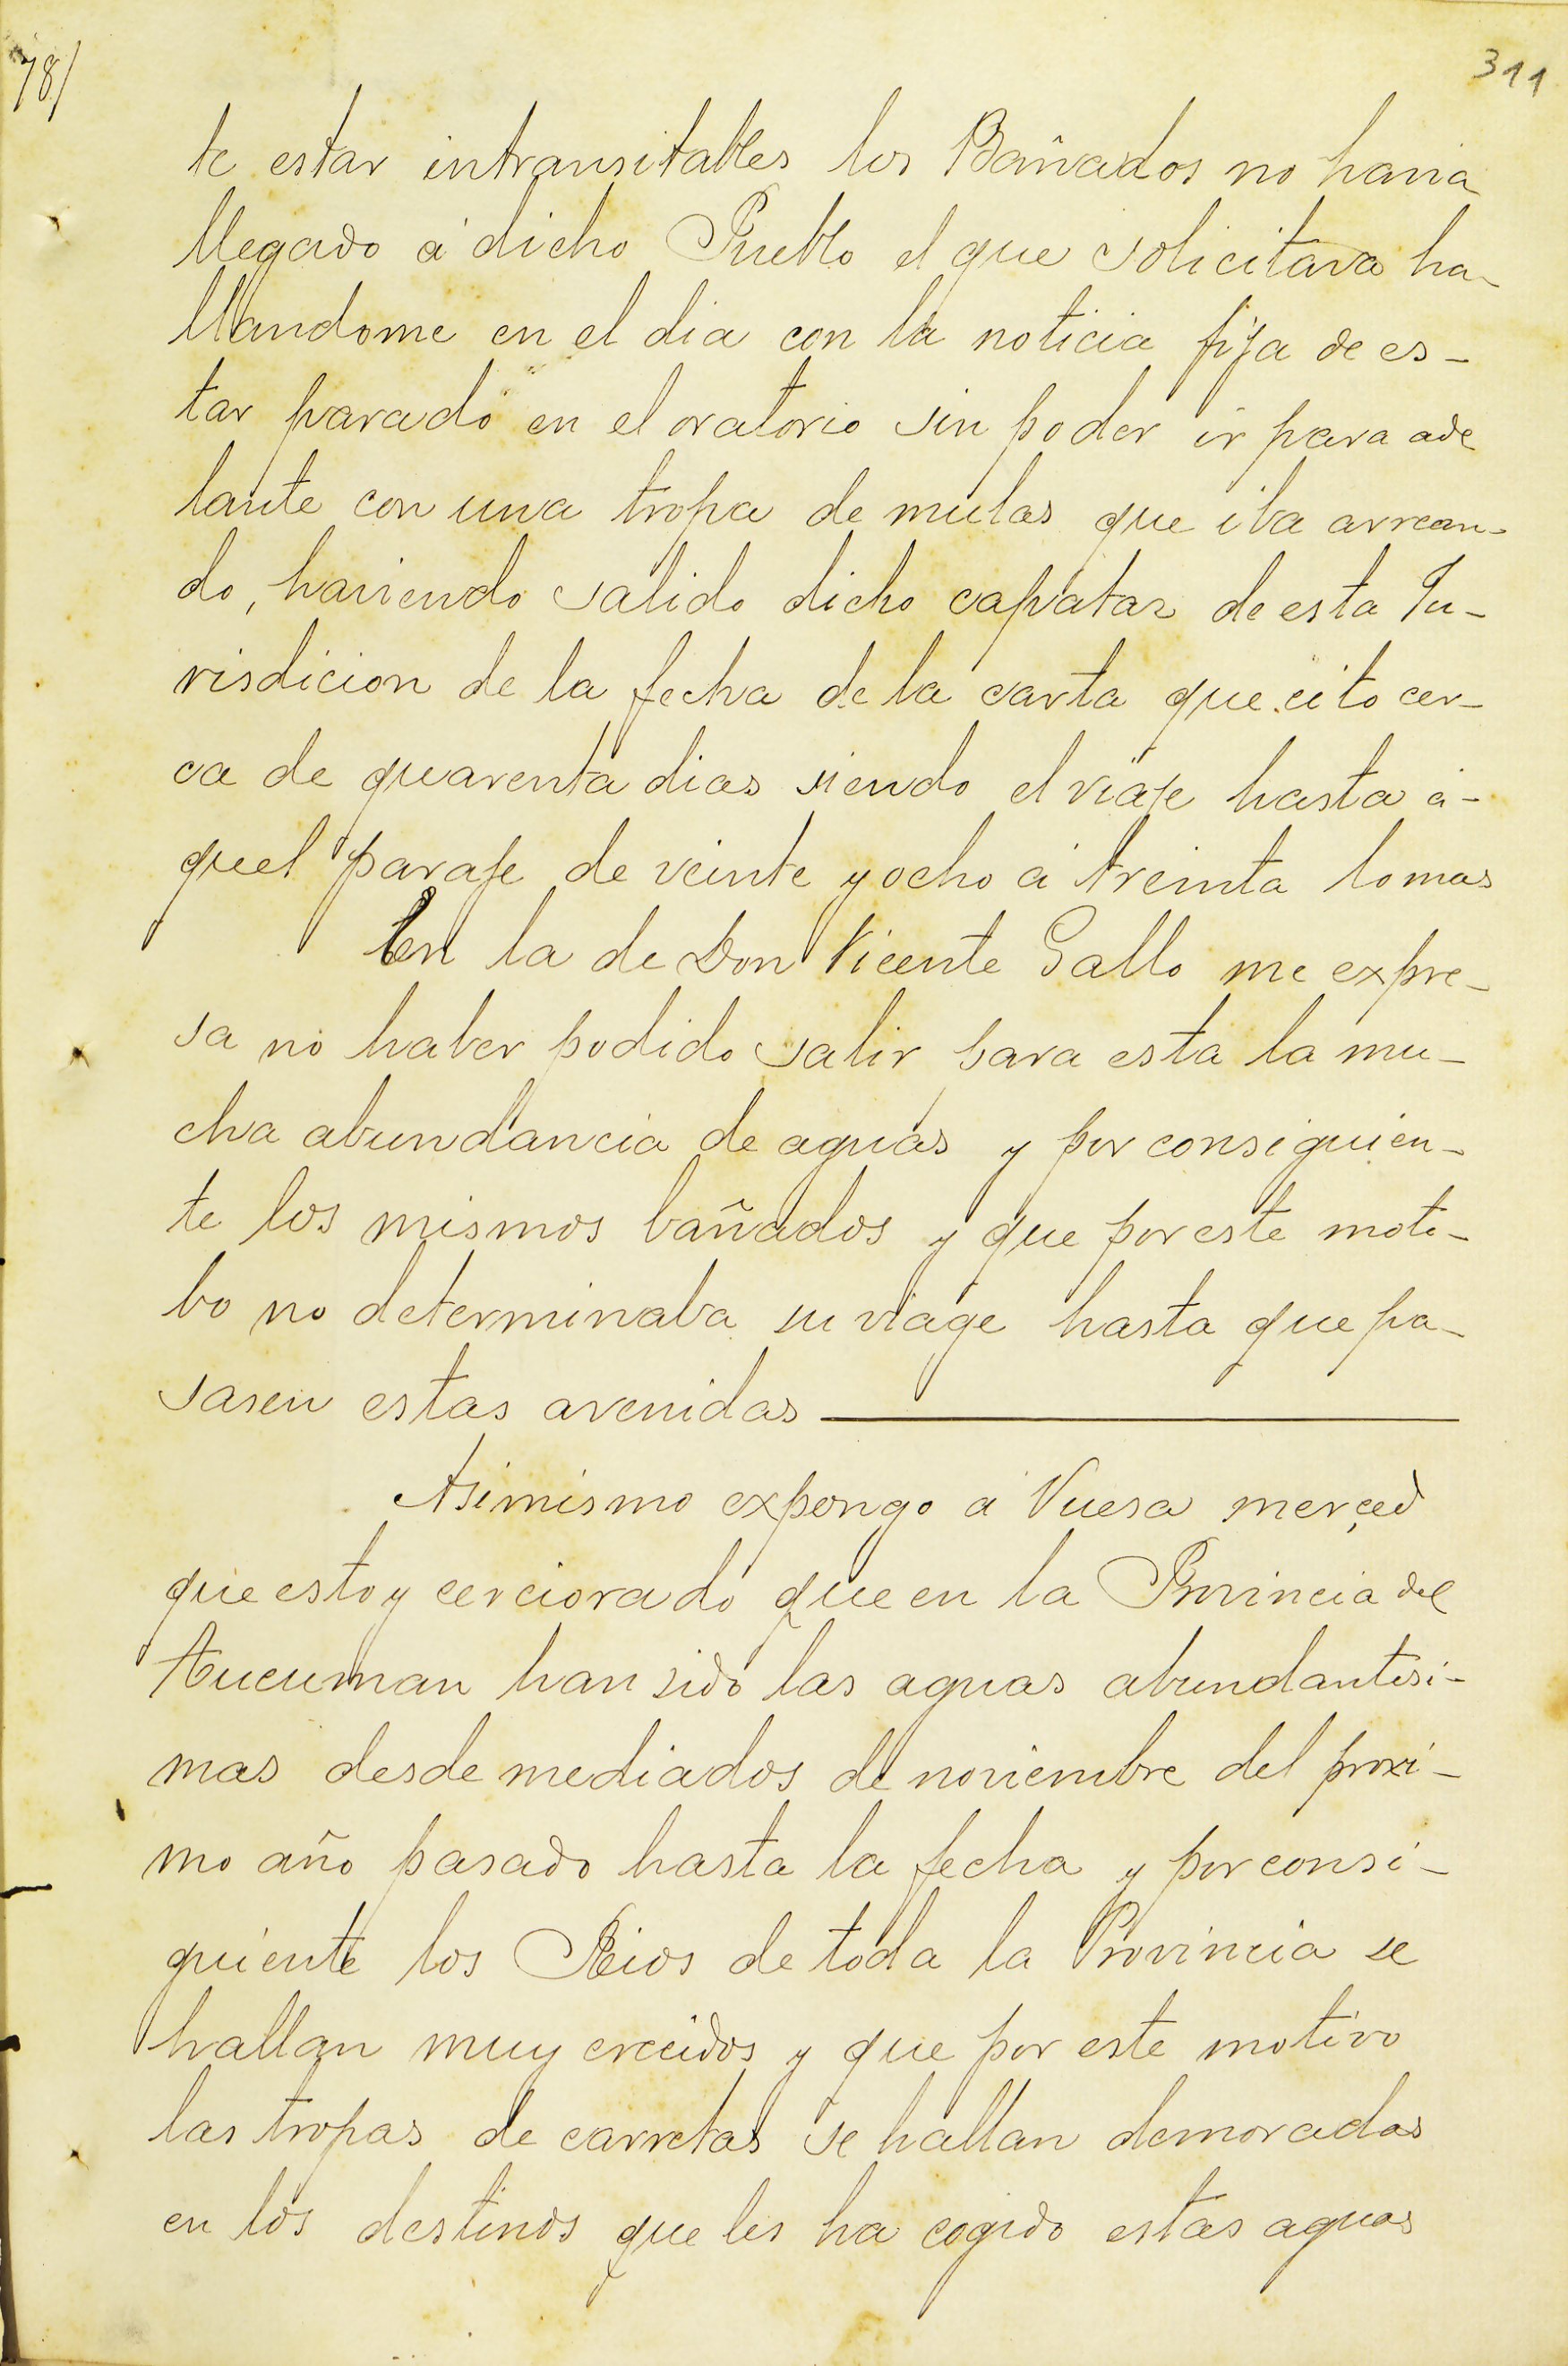 78/
311
te estar intransitables los Bañados no havia
llegado á dicho Pueblo el que solicitava ha-
llandome en el dia con la noticia fija de es-
tar parado en el oratorio sin poder ir para ade
lante con una tropa de mulas que iba arrean-
do, haviendo salido dicho capataz de esta Ju-
risdicion de la fecha de la carta que cito cer-
ca de quarenta dias siendo el viaje hasta a-
quel paraje de veinte y ocho á treinta lo mas
En la de Don Vicente Gallo me expre-
sa no haber podido salir para esta la mu-
cha abundancia de aguas y por consiguien-
te los mismos bañados y que por este moti-
bo no determinaba su viage hasta que pa-
sasen estas avenidas
Asimismo expongo á Vuesa merced
que estoy cerciorado que en la Provincia del
Tucuman han sido las aguas abundantisi-
mas desde mediados de noviembre del proxi-
mo año pasado hasta la fecha y por consi-
guiente los Rios de toda la Provincia se
hallan muy crecidos y que por este motivo
las tropas de carretas se hallan demoradas
en los destinos que les ha cogido estas aguas